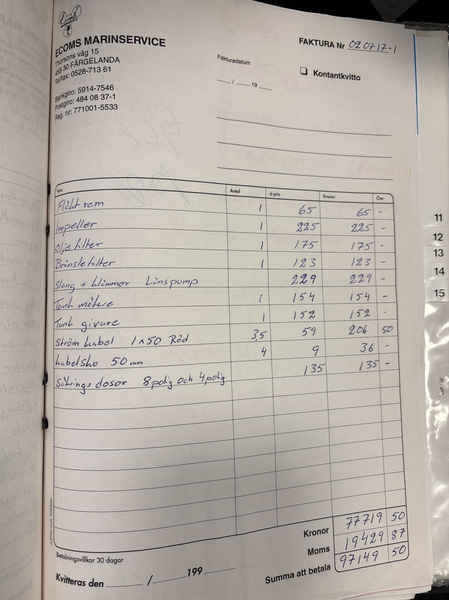 ECOMS MARINSERVICE
Thorsons väg 15
458 30 FÄRGELANDA
Tel/fax: 0528-713 61
Bankgiro: 5914-7546
Postgiro: 484 08 37-1
Reg. nr: 771001-5533
FAKTURA Nr 020717-1
Fakturadatum
___ / ___ 19 ___
Kontantkvitto
Antal á-pris Kronor Öre
Fläktrem 1 65 65 -
Impeller 1 225 225 -
Oljefilter 1 175 175 -
Bränslefilter 1 123 123 -
Slang + klämmor Länspump 229 229 -
Tank mätare 1 154 154 -
Tank givare 1 152 152 -
Ström kabel 1x50 Röd 3,5 59 206 50
Kabelsko 50 mm 4 9 36 -
Säkrings dosor 8 polig och 4 polig 135 135 -
Kronor 77719 50
Moms 19429 87
Summa att betala 97149 50
Betalningsvillkor 30 dagar
Kvitteras den ___ / ___ 199 ___
11
12
13
14
15